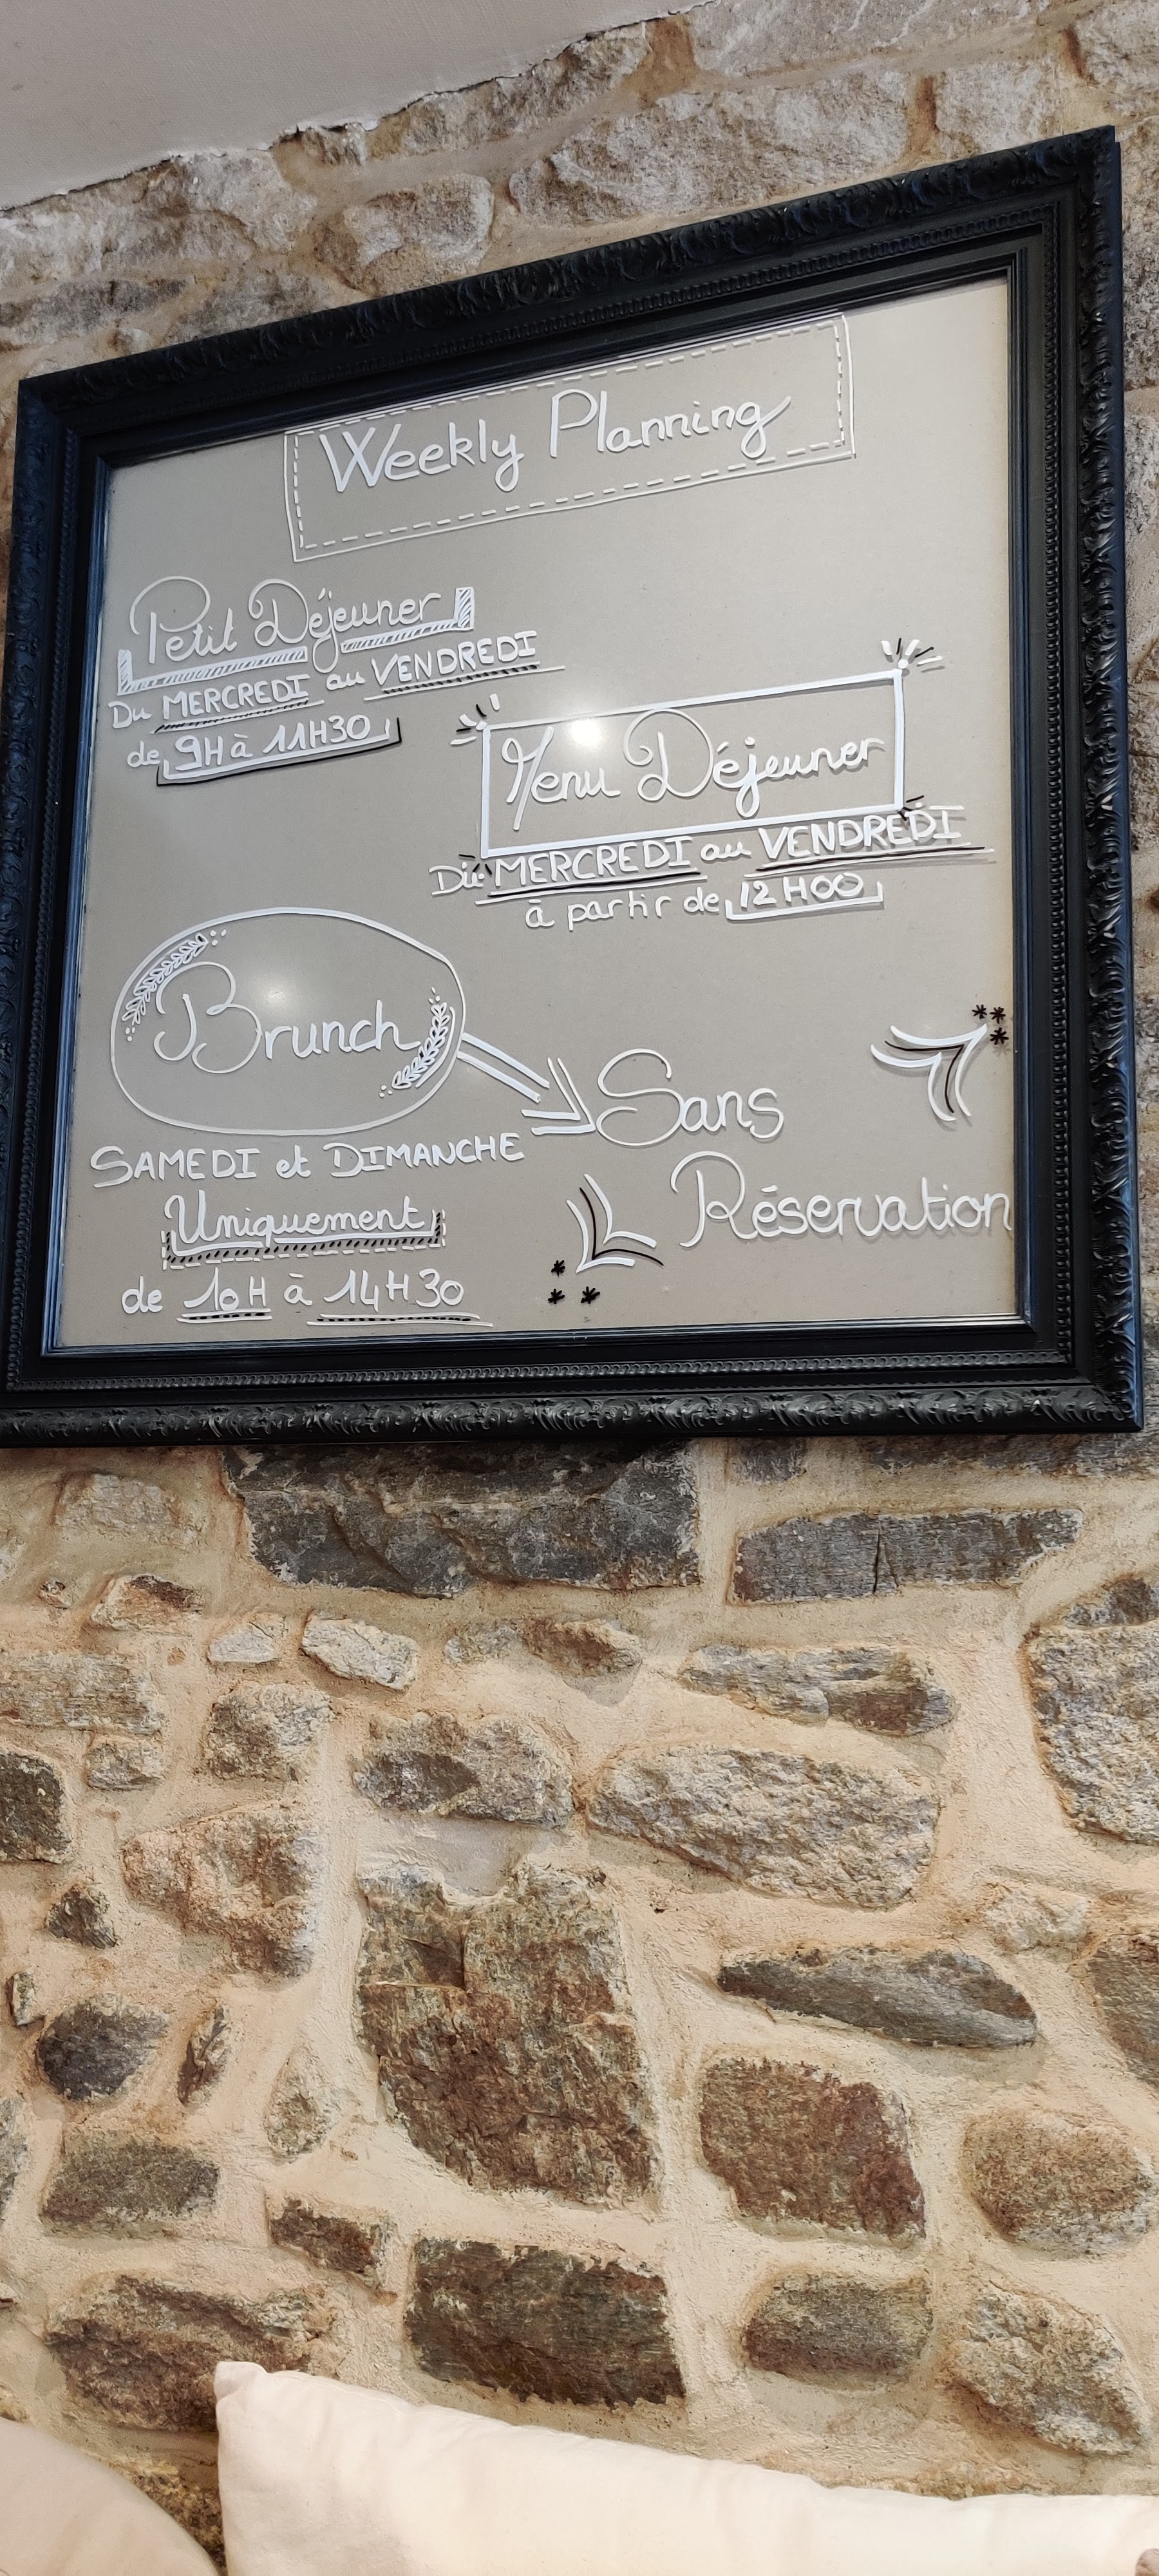 Weekly Planning
Petit Déjeuner
Du MERCREDI au VENDREDI
de 9H à 11H30
Menu Déjeuner
Du MERCREDI au VENDREDI
à partir de 12H00
Brunch
SAMEDI et DIMANCHE
Uniquement
de 10H à 14H30
Sans
Réservation